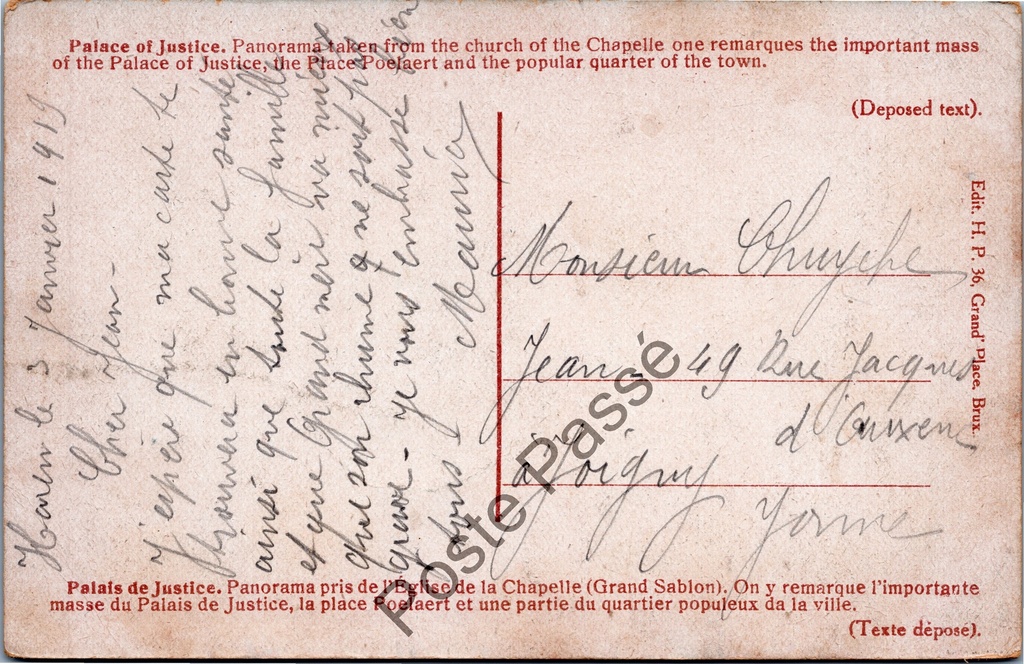 Palace of Justice. Panorama taken from the church of the Chapelle one remarques the important mass
of the Palace of Justice, the Place Poelaert and the popular quarter of the town.
(Deposed text).
Haren le 3 Janvier 1919
Cher Jean -
J'espère que ma carte te
trouvera en bonne santé
ainsi que toute la famille
et que Grand mère va mieux
que son rhume ne soit pas
grave - je vous embrasse bien
tous
Maurice
Monsieur Chuyche
Jean - 49 Rue Jacques
d'
à Joigny
Yonne
Edit. H. P. 36, Grand' Place, Brux.
Poste Passé
Palais de Justice. Panorama pris de l'Eglise de la Chapelle (Grand Sablon). On y remarque l'importante
masse du Palais de Justice, la place Poelaert et une partie du quartier populeux da la ville.
(Texte déposé).